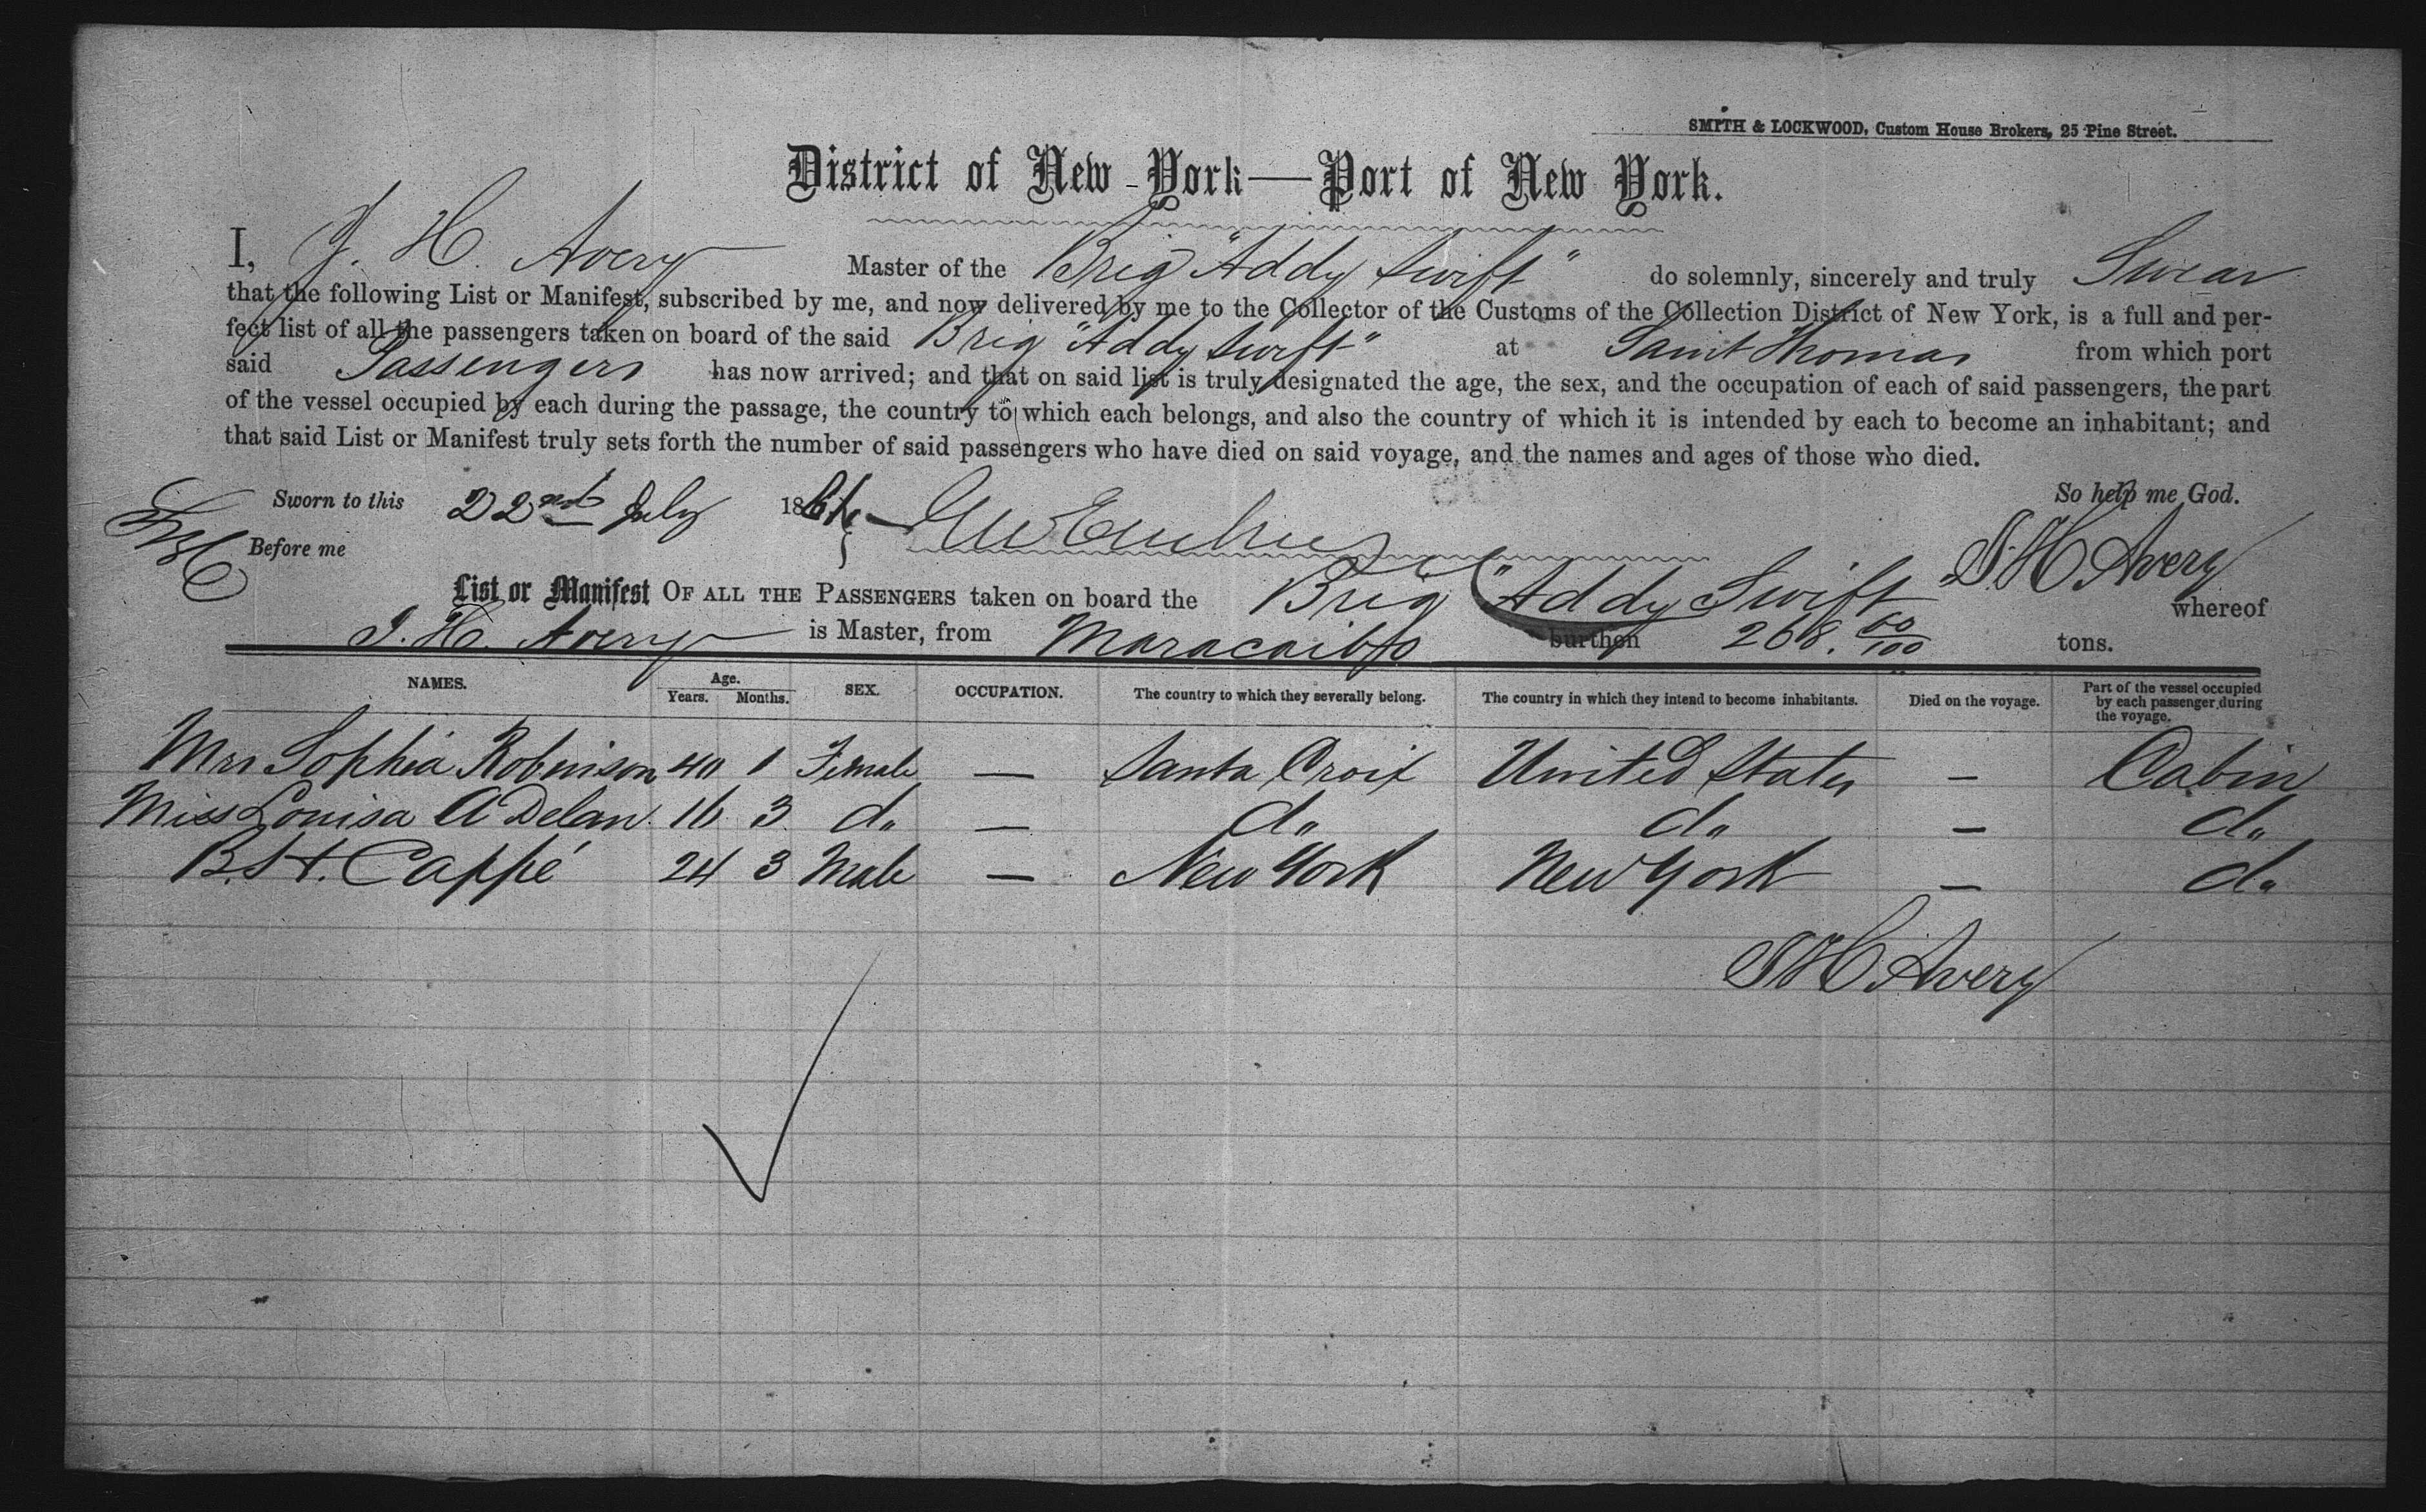 SMITH & LOCKWOOD, Custom House Brokers, 25 Pine Street.
District of New-York—Port of New York.
I, J. H. Avery Master of the Brig "Addy Swift" do solemnly, sincerely and truly Swear
that the following List or Manifest, subscribed by me, and now delivered by me to the Collector of the Customs of the Collection District of New York, is a full and per-
fect list of all the passengers taken on board of the said Brig "Addy Swift" at Saint Thomas from which port
said Passengers has now arrived; and that on said list is truly designated the age, the sex, and the occupation of each of said passengers, the part
of the vessel occupied by each during the passage, the country to which each belongs, and also the country of which it is intended by each to become an inhabitant; and
that said List or Manifest truly sets forth the number of said passengers who have died on said voyage, and the names and ages of those who died.
Sworn to this 22nd July 186 So help me God.
Before me J H Avery
List or Manifest OF ALL THE PASSENGERS taken on board the Brig "Addy Swift whereof
J. H. Avery is Master, from Maracaibo burthen 268. 60/100 tons.
NAMES. Age. Years. Months. SEX. OCCUPATION. The country to which they severally belong. The country in which they intend to become inhabitants. Died on the voyage. Part of the vessel occupied by each passenger during the voyage.
Mrs Sophia Robinson 40 1 Female — Santa Croix United States — Cabin
Miss Louisa A Delan 16 3 do — do do — do
B. St. Cappé 24 3 Male — New York New York — do
J H Avery